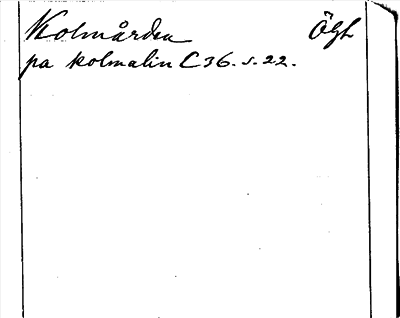 Kolmården Ögl
pa kolmalin C 36. s. 22.